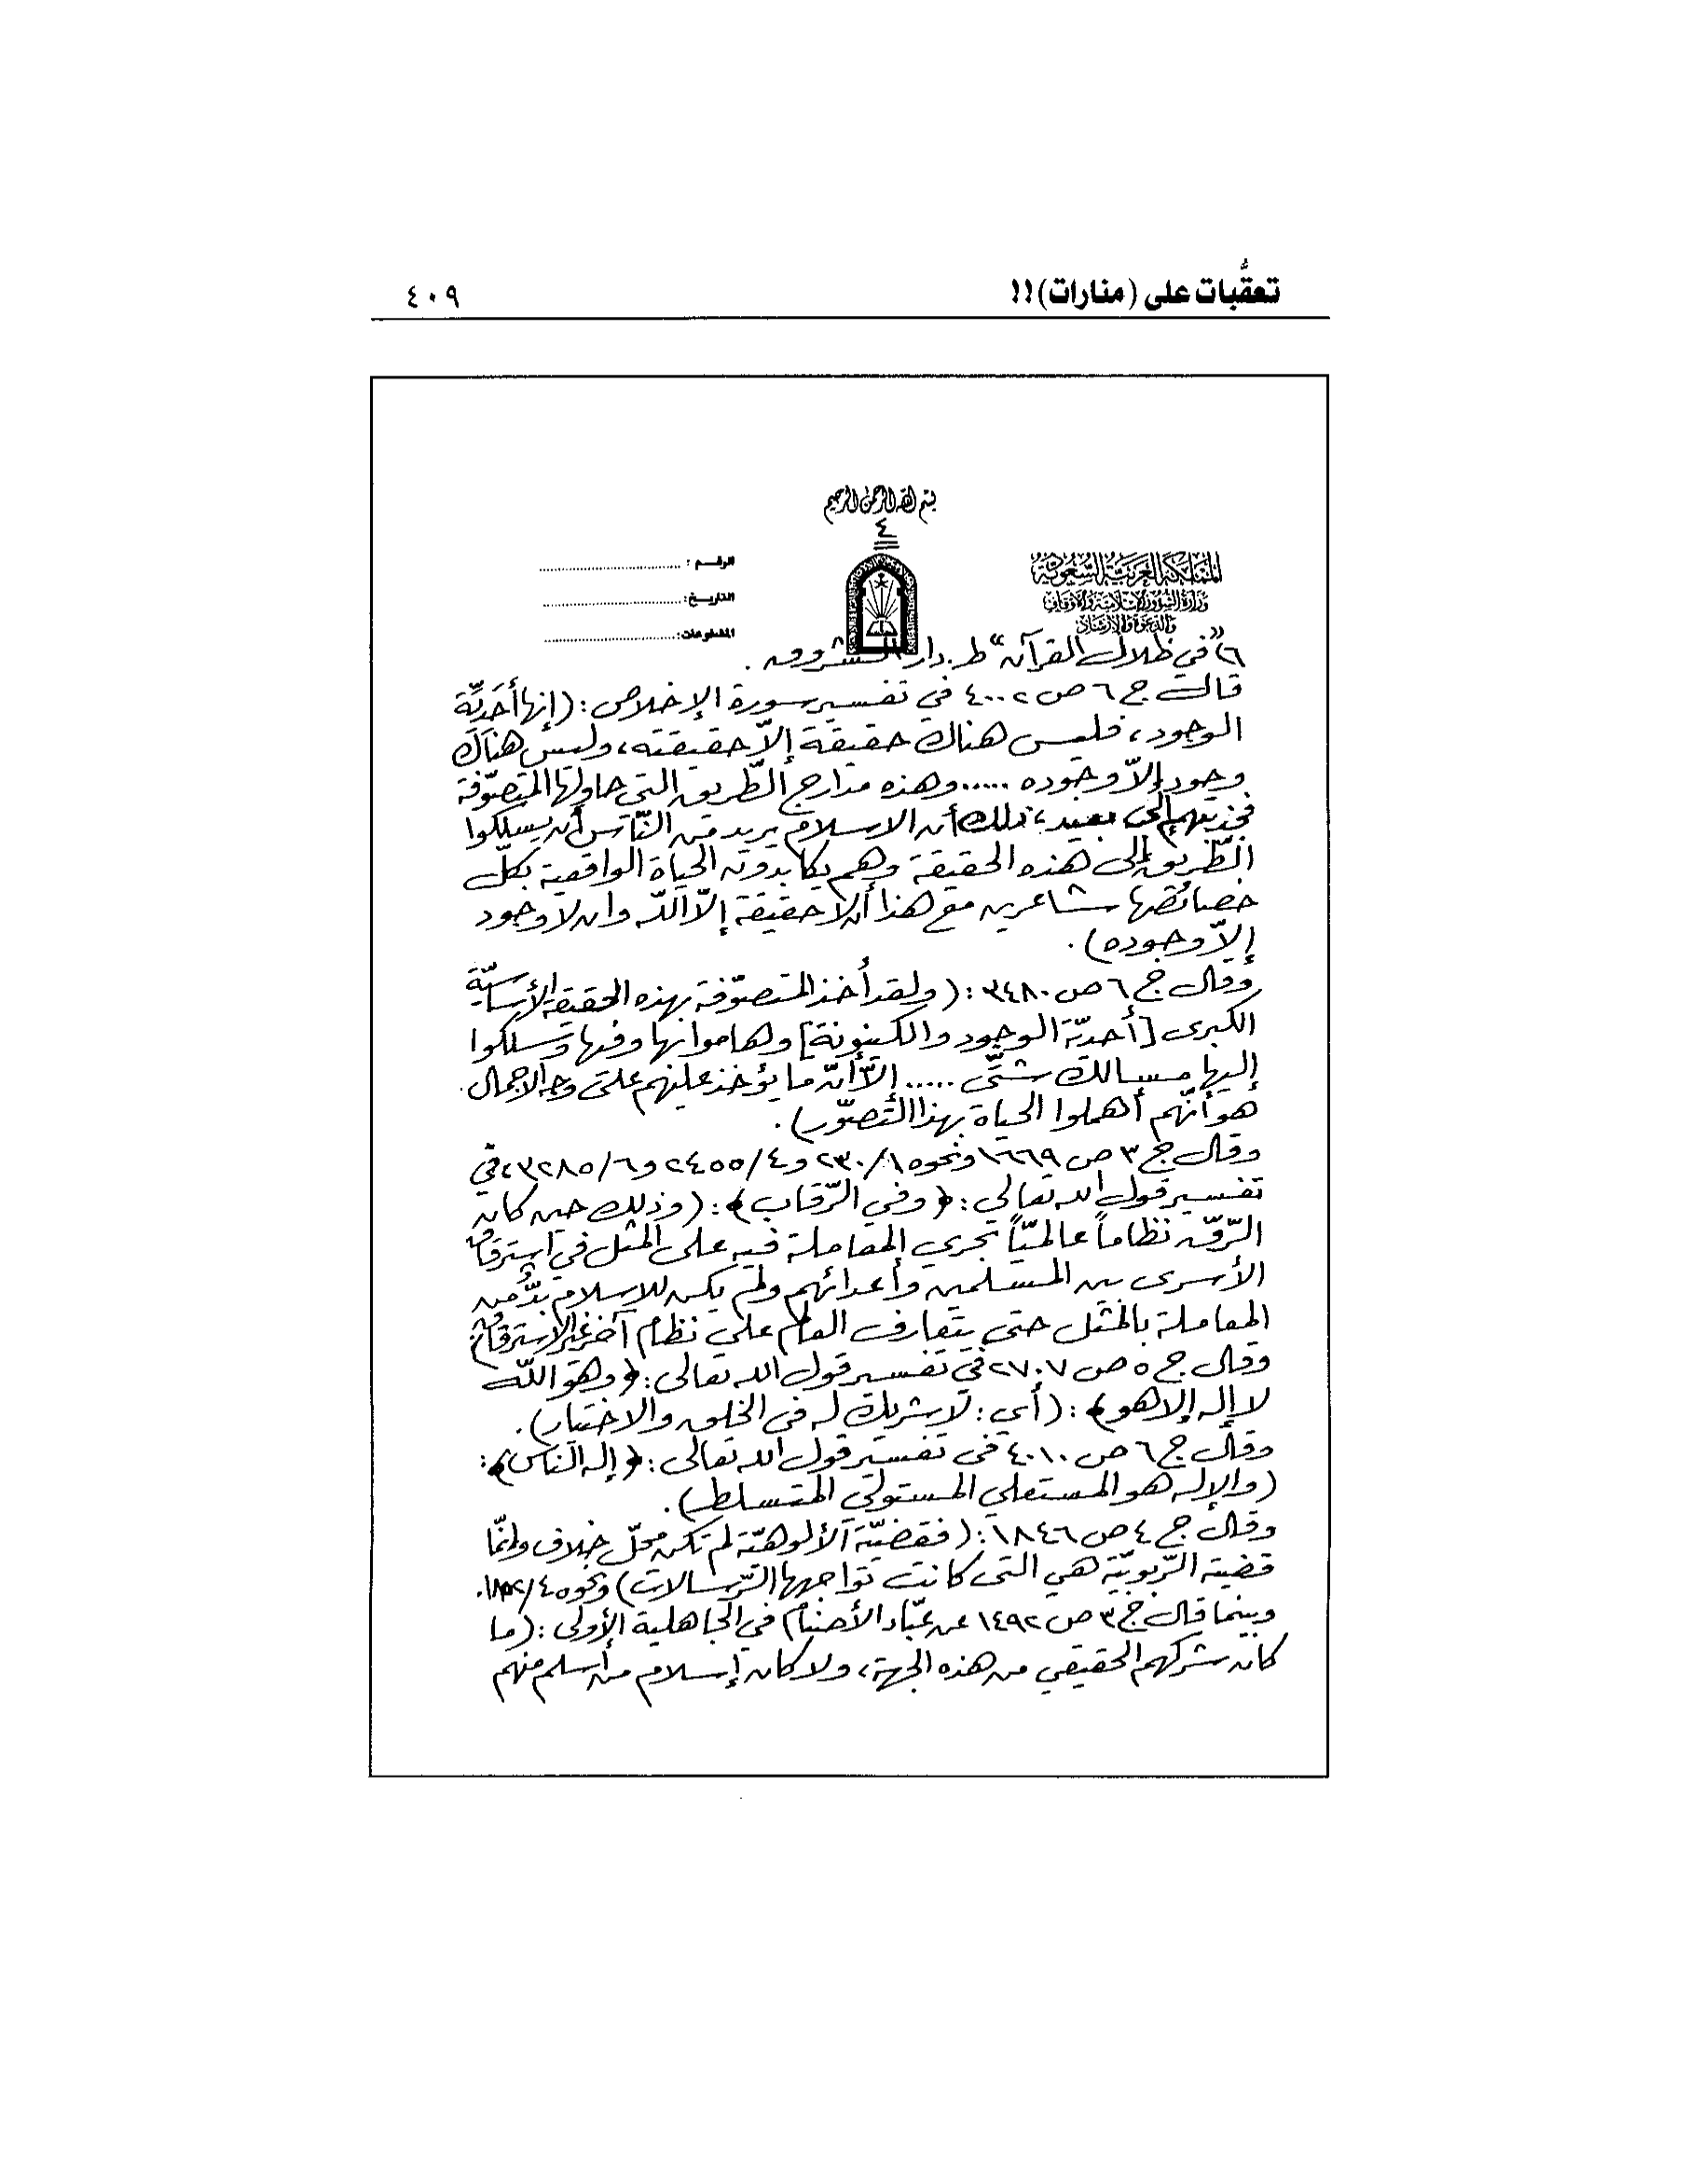 تعقُّبات على (منارات)!!
٤٠٩
بسم الله الرحمن الرحيم
٤
المملكة العربية السعودية
وزارة الشؤون الإسلامية والأوقاف
والدعوة والإرشاد
الرقـــم :
التاريــخ:
المشفوعات:
٦) "في ظلال القرآن" ط. دار الشروق.
قال ج ٦ ص ٤٠٠٢ في تفسير سورة الإخلاص: (إنها أَحَدِيَّة
الوجود، فليس هناك حقيقة إلاّ حقيقته، وليس هناك
وجود إلاّ وجوده ..... وهذه مدارج الطّريق التي حاولها المتصوّفة
فجذبتهم إلى بعيد، ذلك أن الاسلام يريد من النّاس أن يسلكوا
الطّريق إلى هذه الحقيقة وهم يكابدون الحياة الواقعية بكلّ
خصائصها شاعرين مع هذا أن لا حقيقة إلاّ اللّه وان لا وجود
إلاّ وجوده).
وقال ج ٦ ص ٣٤٨٠: (ولقد أخذ المتصوّفة بهذه الحقيقة الأساسيّة
الكبرى [أحديّة الوجود والكينونة] وهاموا بها وفيها وسلكوا
إليها مسالك شتَّى ..... إلاّ أنّ ما يؤخذ عليهم على وجه الاجمال
هو أنّهم أهملوا الحياة بهذا التّصوّر).
وقال ج ٣ ص ١٦٦٩ ونحوه ٢٣٠/١ و ٢٤٥٥/٤ و ٣٢٨٥/٦، في
تفسير قول الله تعالى: ﴿وفي الرّقاب﴾: (وذلك حين كان
الرّقّ نظاماً عالميّاً تجري المعاملة فيه على المثل في استرقاق
الأسرى بين المسلمين وأعدائهم ولم يكن للإسلام بدٌّ من
المعاملة بالمثل حتى يتعارف العالم على نظام آخر غير الاسترقاق)
وقال ج ٥ ص ٢٧٠٧ في تفسير قول الله تعالى: ﴿وهو اللّه
لا إله إلا هو﴾: (أي: لا شريك له في الخلق والاختيار).
وقال ج ٦ ص ٤٠١٠ في تفسير قول الله تعالى: ﴿إله النّاس﴾:
(والإله هو المستعلي المستولي المتسلط).
وقال ج ٤ ص ١٨٤٦: (فقضيّة الألوهيّة لم تكن محلّ خلاف وإنّما
قضية الرّبوبيّة هي التى كانت تواجهها الرّسالات) ونحوه
وبينما قال ج ٣ ص ١٤٩٢ عن عبّاد الأصنام في الجاهلية الأولى: (ما
كان شركهم الحقيقي من هذه الجهة، ولا كان إسلام من أسلم منهم